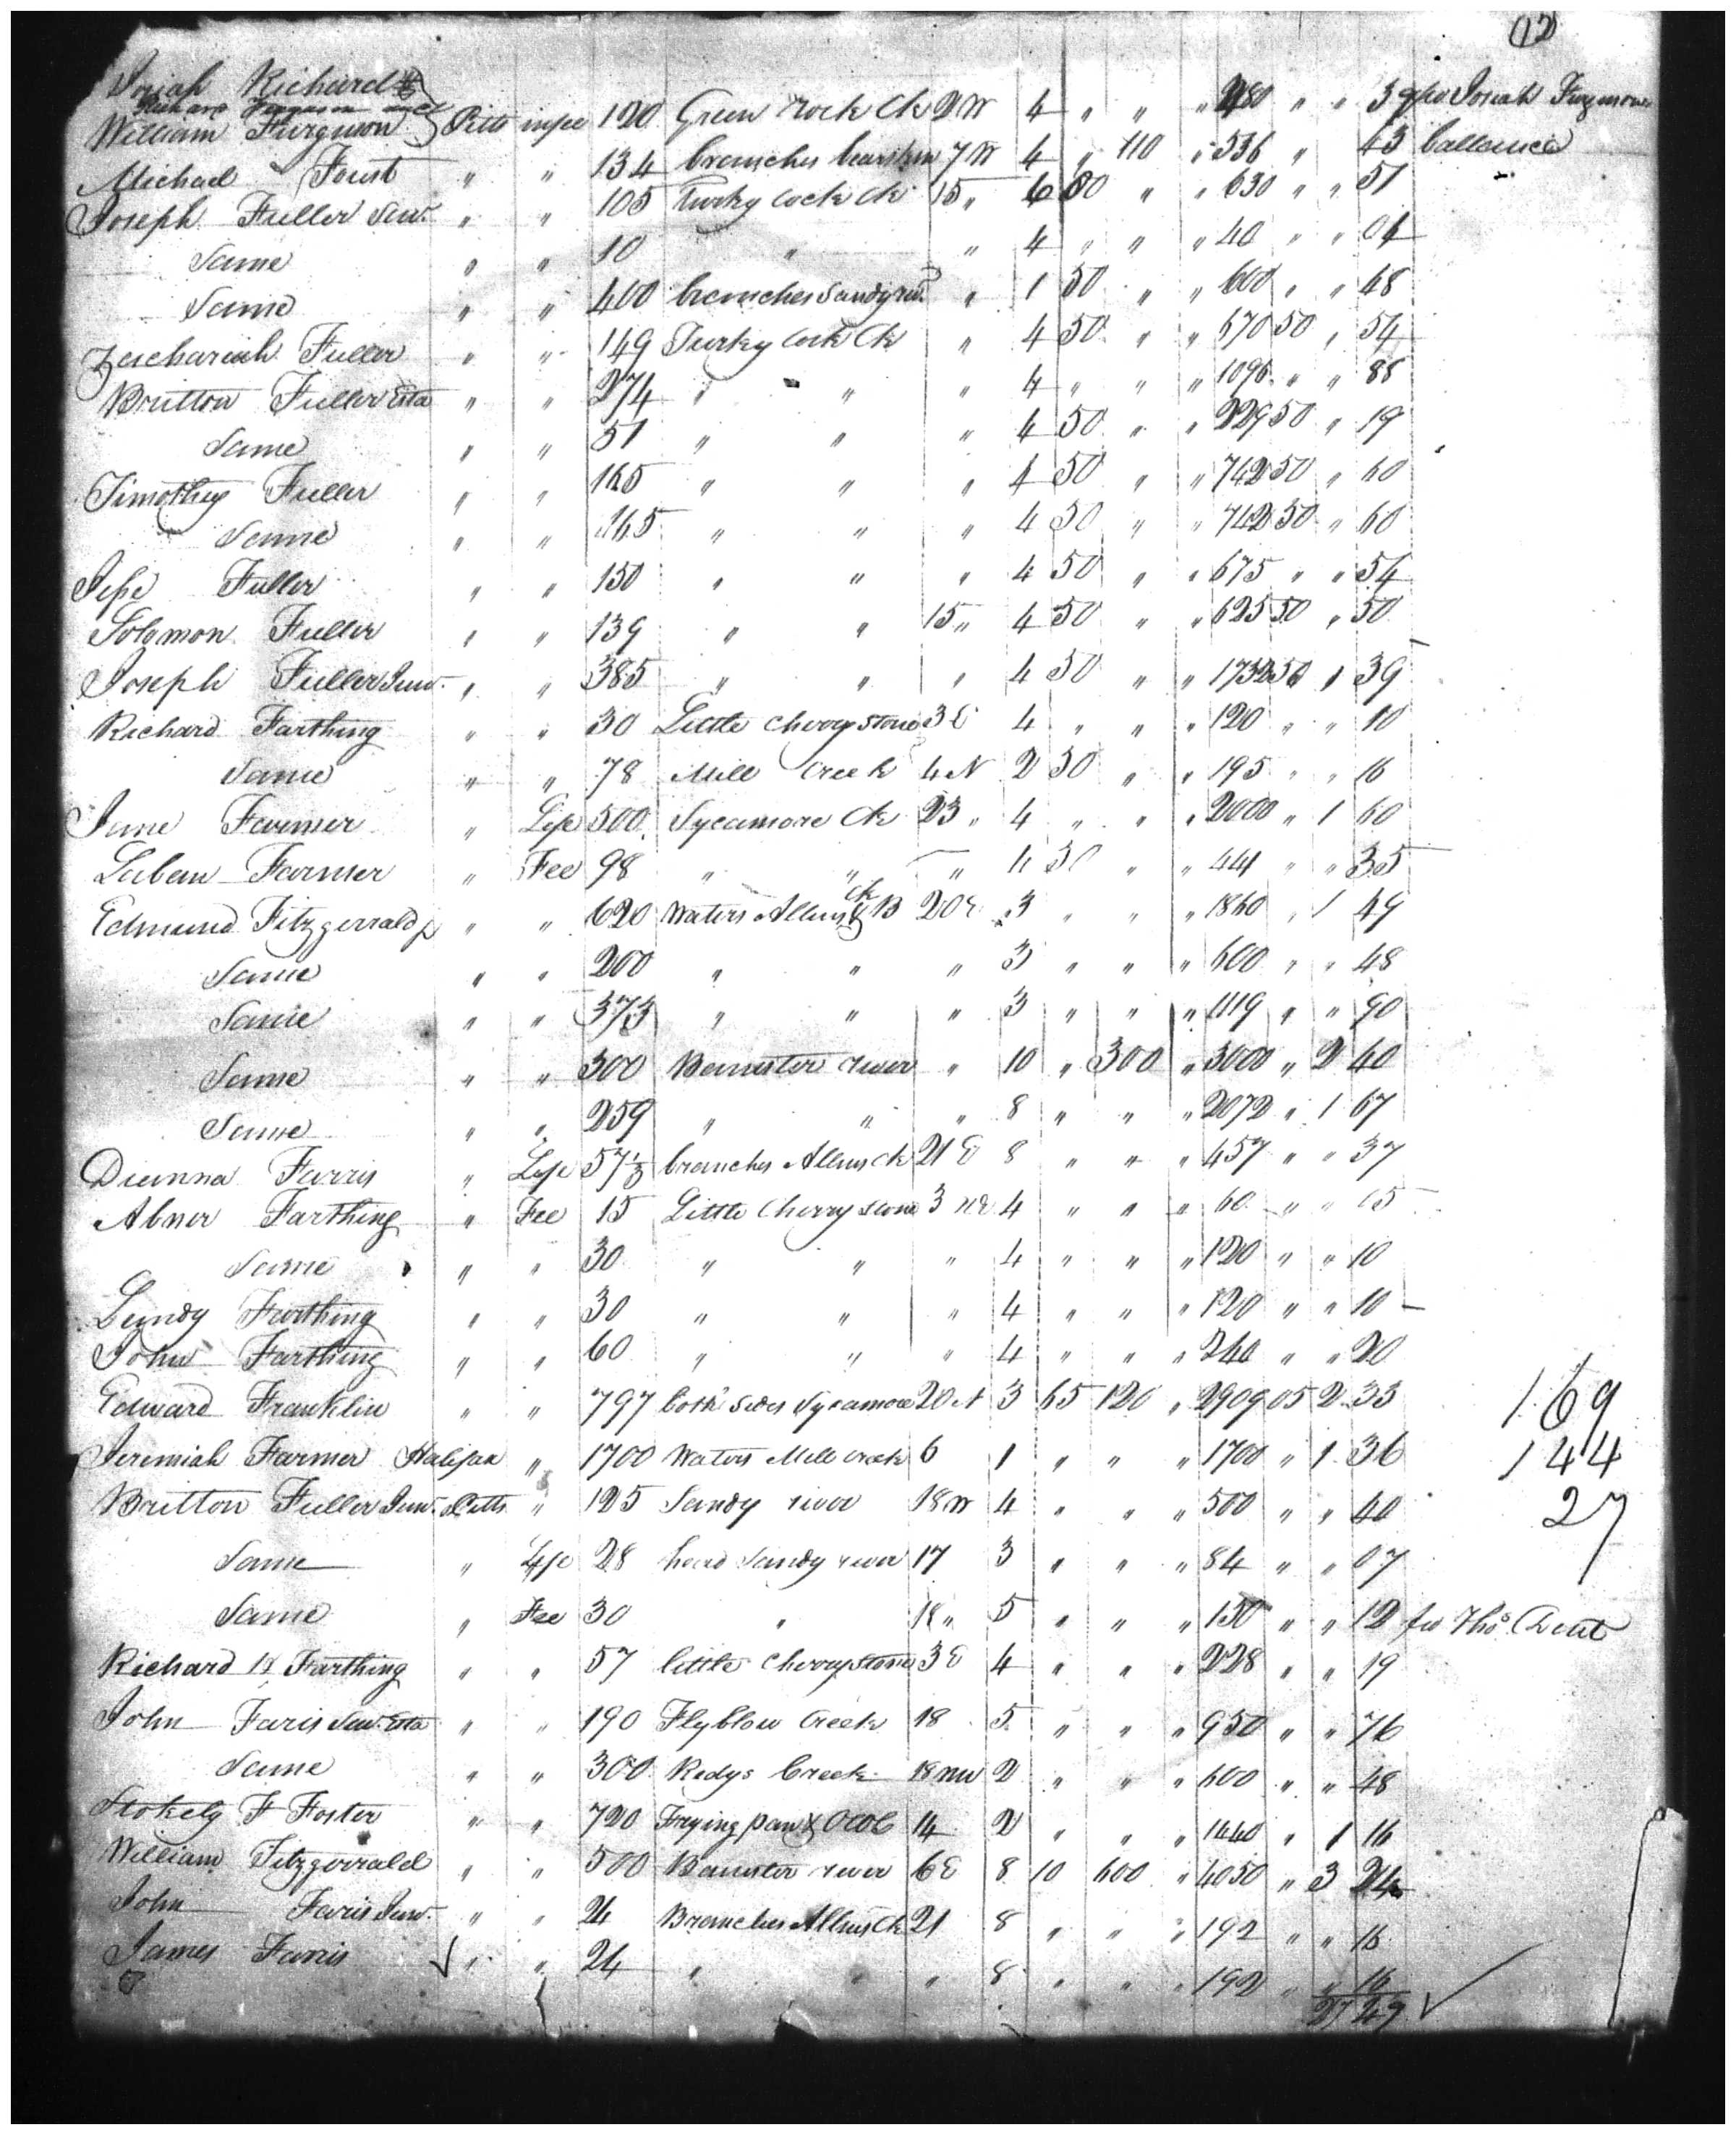 (12)
Josiah Richard &
William Ferguson Pitts in fee 120 Green Rock Ck 2 W 4 " " " 480 " " 39 pr Josiah Furgmone
Michael Foust " " 134 branches bearskin 7 W 4 " 110 " 536 " 43 ballance
Joseph Fuller Senr. " " 105 Turky Cock Ck 15 " 6 00 " " 630 " " 51
Same " " 10 " " 4 " " " 40 " " 04
Same " " 400 branches Sandy riv. " 1 50 " " 600 " " 48
Zachariah Fuller " " 149 Turky Cock Ck " 4 50 " " 670 50 " 54
Britton Fuller Esta " " 274 " " " 4 " " " 1096 " " 88
Same " " 51 " " " 4 50 " " 229 50 " 19
Timothy Fuller " " 165 " " " 4 50 " " 742 50 " 60
Same " " 165 " " " 4 50 " " 742 50 " 60
Jesse Fuller " " 150 " " " 4 50 " " 675 " " 54
Solomon Fuller " " 139 " " 15 " 4 50 " " 625 50 " 50
Joseph Fuller Junr. " " 385 " " " 4 50 " " 1732 50 1 39
Richard Farthing " " 30 Little Cherrystone 3 E 4 " " " 120 " " 10
Same " " 78 Mill Creek 4 N 2 50 " " 195 " " 16
Jane Farmer " Life 500 Sycamore Ck 23 " 4 " " " 2000 " 1 60
Laban Farmer " Fee 98 " " " 4 50 " " 441 " " 35
Edmund Fitzgerrald " " 620 Waters Allins Ck & B 20 E 3 " " " 1860 " 1 49
Same " " 200 " " " 3 " " " 600 " " 48
Same " " 373 " " " 3 " " " 1119 " " 90
Same " " 300 Bannister river " 10 " 300 " 3000 " 2 40
Same " " 259 " " " 8 " " " 2072 " 1 67
Dianna Farris " Life 57½ branches Allins Ck 21 E 8 " " " 457 " " 37
Abner Farthing " Fee 15 Little Cherrystone 3 NE 4 " " " 60 " " 05
Same " " 30 " " " 4 " " " 120 " " 10
Lundy Farthing " " 30 " " " 4 " " " 120 " " 10
John Farthing " " 60 " " " 4 " " " 240 " " 20
Edward Franklin " " 797 both sides Sycamore 20 N 3 65 120 " 2909 05 2 33 1 69
Jeremiah Farmer Halifax " 1700 Waters Mill Creek 6 1 " " " 1700 " 1 36 1 44
Britton Fuller Junr. Pitts " 125 Sandy river 18 W 4 " " " 500 " " 40 27
Same " Life 28 head Sandy river 17 3 " " " 84 " " 07
Same " Fee 30 " 18 " 5 " " " 150 " " 12 fro Thos.
Richard Farthing " " 57 little Cherrystone 3 E 4 " " " 228 " " 19
John Faris Senr. Esta " " 190 Flyblow Creek 18 5 " " " 950 " " 76
Same " " 300 Redys Creek 18 NW 2 " " " 600 " " 48
Stokely F Foster " " 720 Frying pan & 14 2 " " " 1440 " 1 16
William Fitzgerrald " " 500 Bannister river 6 E 8 10 600 " 4050 " 3 24
John Faris Junr. " " 24 Branches Allins Ck 21 8 " " " 192 " " 16
James Farris " " 24 " " " 8 " " " 192 " " 16
27 49